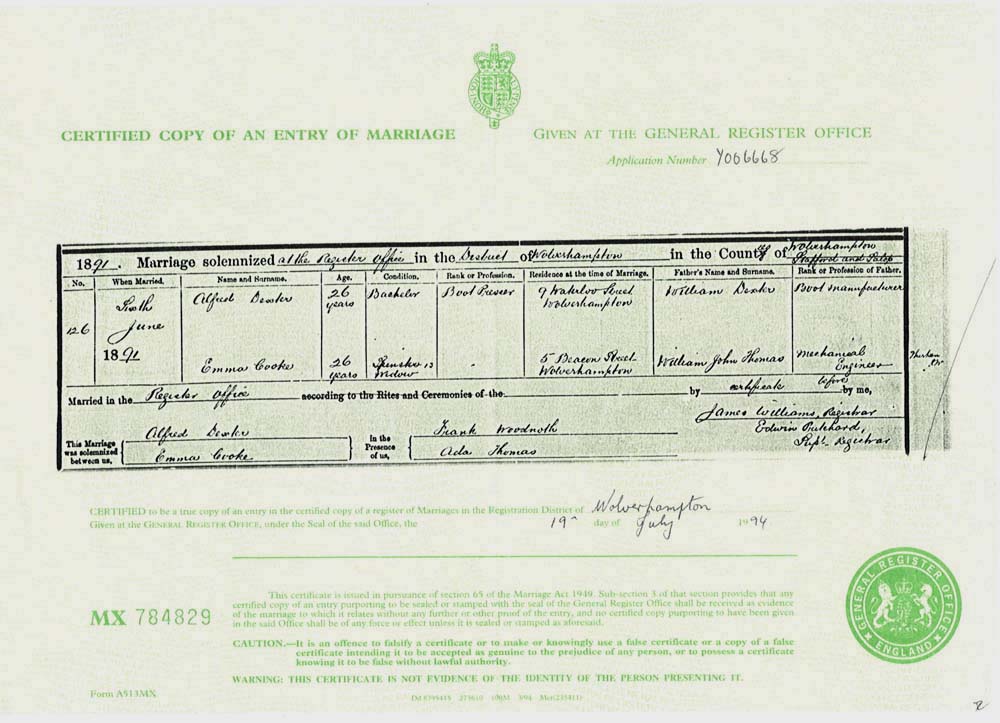 CERTIFIED COPY OF AN ENTRY OF MARRIAGE
GIVEN AT THE GENERAL REGISTER OFFICE
Application Number Y006668
1891. Marriage solemnized at the Register Office in the District of Wolverhampton in the County of Wolverhampton
No. When Married. Name and Surname. Age. Condition. Rank or Profession. Residence at the time of Marriage. Father's Name and Surname. Rank or Profession of Father.
126 Sixth June 1891
Alfred Dexter 26 years Bachelor Boot Presser 9 Waterloo Street Wolverhampton William Dexter Boot Manufacturer
Emma Cooke 26 years Widow - 5 Beacon Street Wolverhampton William John Thomas Mechanical Engineer
Married in the Register Office according to the Rites and Ceremonies of the by certificate before by me,
This Marriage was solemnized between us,
Alfred Dexter
Emma Cooke
In the Presence of us,
Frank Woodnoth
Ada Thomas
James Williams, Registrar
Edwin Pritchard,
Supt Registrar
CERTIFIED to be a true copy of an entry in the certified copy of a register of Marriages in the Registration District of Wolverhampton
Given at the GENERAL REGISTER OFFICE, under the Seal of the said Office, the 19th day of July 1994
MX 784829
This certificate is issued in pursuance of section 65 of the Marriage Act 1949. Sub-section 3 of that section provides that any
certified copy of an entry purporting to be sealed or stamped with the seal of the General Register Office shall be received as evidence
of the marriage to which it relates without any further or other proof of the entry, and no certified copy purporting to have been given
in the said Office shall be of any force or effect unless it is sealed or stamped as aforesaid.
CAUTION.—It is an offence to falsify a certificate or to make or knowingly use a false certificate or a copy of a false
certificate intending it to be accepted as genuine to the prejudice of any person, or to possess a certificate
knowing it to be false without lawful authority.
WARNING: THIS CERTIFICATE IS NOT EVIDENCE OF THE IDENTITY OF THE PERSON PRESENTING IT.
GENERAL REGISTER OFFICE
ENGLAND
Form A513MX